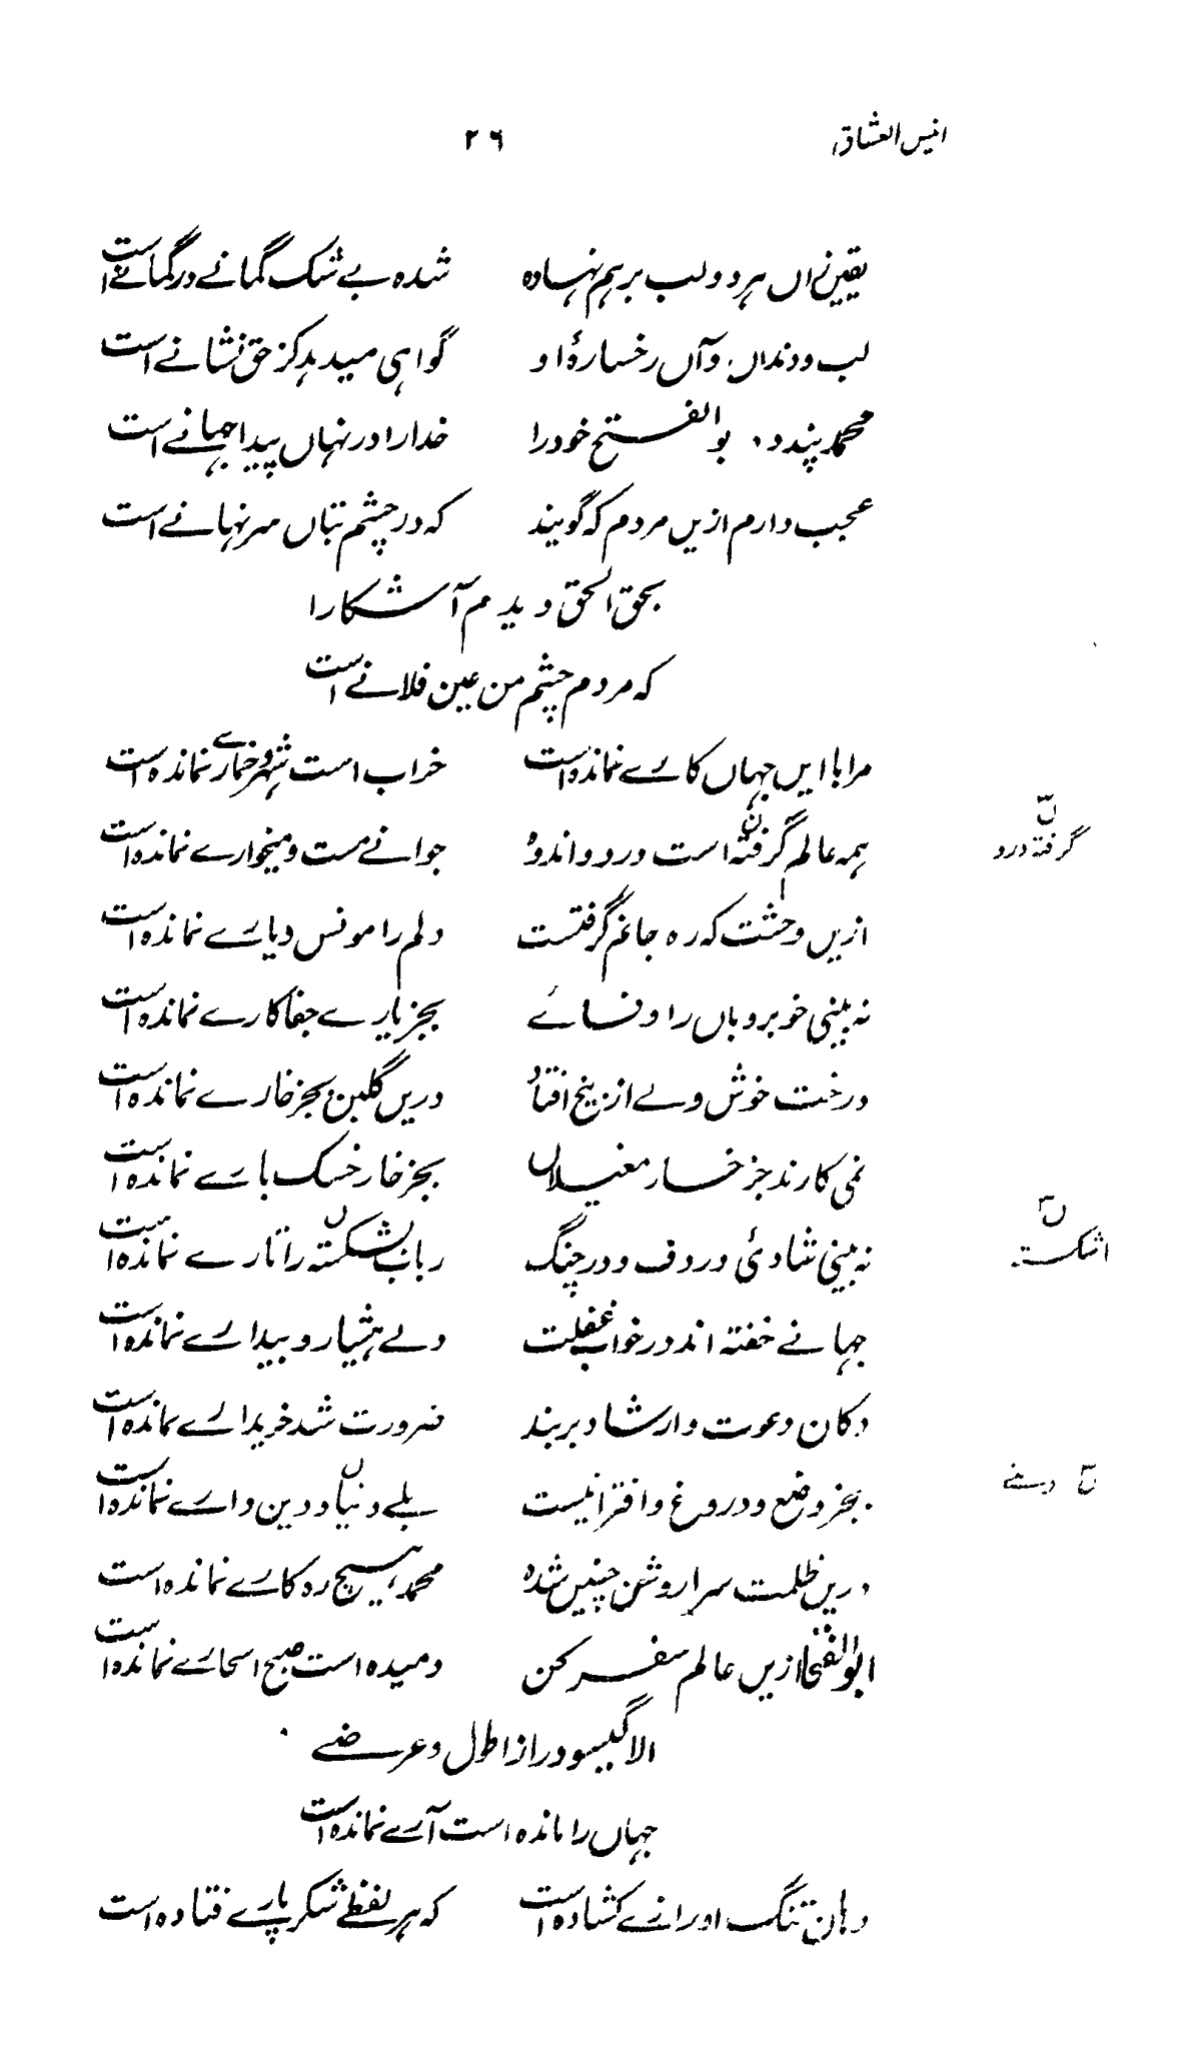 انیس العشاق ۲۶
یقینے آں ہر دو لب برہم نہادہ شدہ بے شک گمانے در گمانے است
لب و دنداں و آں رخسارۂ او گواہی میدہد کز حق نشانے است
محمد پند دہ بوالفتح خود را خدا را در نہاں پیدا جہانے است
عجب دارم ازیں مردم کہ گویند کہ در چشم بتاں سر نہانے است
بحق الحق دیدم آشکارا
کہ مردم چشم من عین فلانے است
مرا با ایں جہاں کارے نماندہ است خراب است شہر و خمارے نماندہ است
ہمہ عالم گرفتہ است درد و اندوہ جوانے مست و میخوارے نماندہ است
ن گرفتہ درد
ازیں وحشت کہ رہ جانم گرفتست دلم را مونس و یارے نماندہ است
نہ بینی خوبرویاں را وفائے بجز یارے جفا کارے نماندہ است
درخت خوش ولے از بیخ افتاد دریں گلبن بجز خارے نماندہ است
نمی کارند جز خسار مغیلاں بجز خار خسک بارے نماندہ است
نہ بینی شادئ در دف و در چنگ رباب بشکستہ را تارے نماندہ است
ن اشکستہ
جہانے خفتہ اند در خواب غفلت دلے ہشیار و بیدارے نماندہ است
دکان دعوت و ارشاد بربند ضرورت شد خریدارے نماندہ است
بجز وضع و دروغ و افترا نیست بلے دنیا و دین دارے نماندہ است
ن دینے
دریں ظلمت سرا روشن چنیں شد محمد ہیچ رہ کارے نماندہ است
ابوالفتحا ازیں عالم سفر کن دمیدہ است صبح اسحارے نماندہ است
الا گیسو دراز اطول و عرضے
جہاں را ماندہ است آرے نماندہ است
دہان تنگ او رازے کشادہ است کہ ہر لفظے شکر پارے فتادہ است